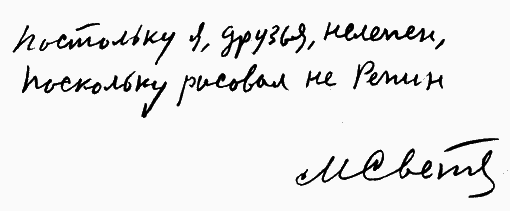 Постольку я, друзья, нелепен,
Поскольку рисовал не Репин
МСветл